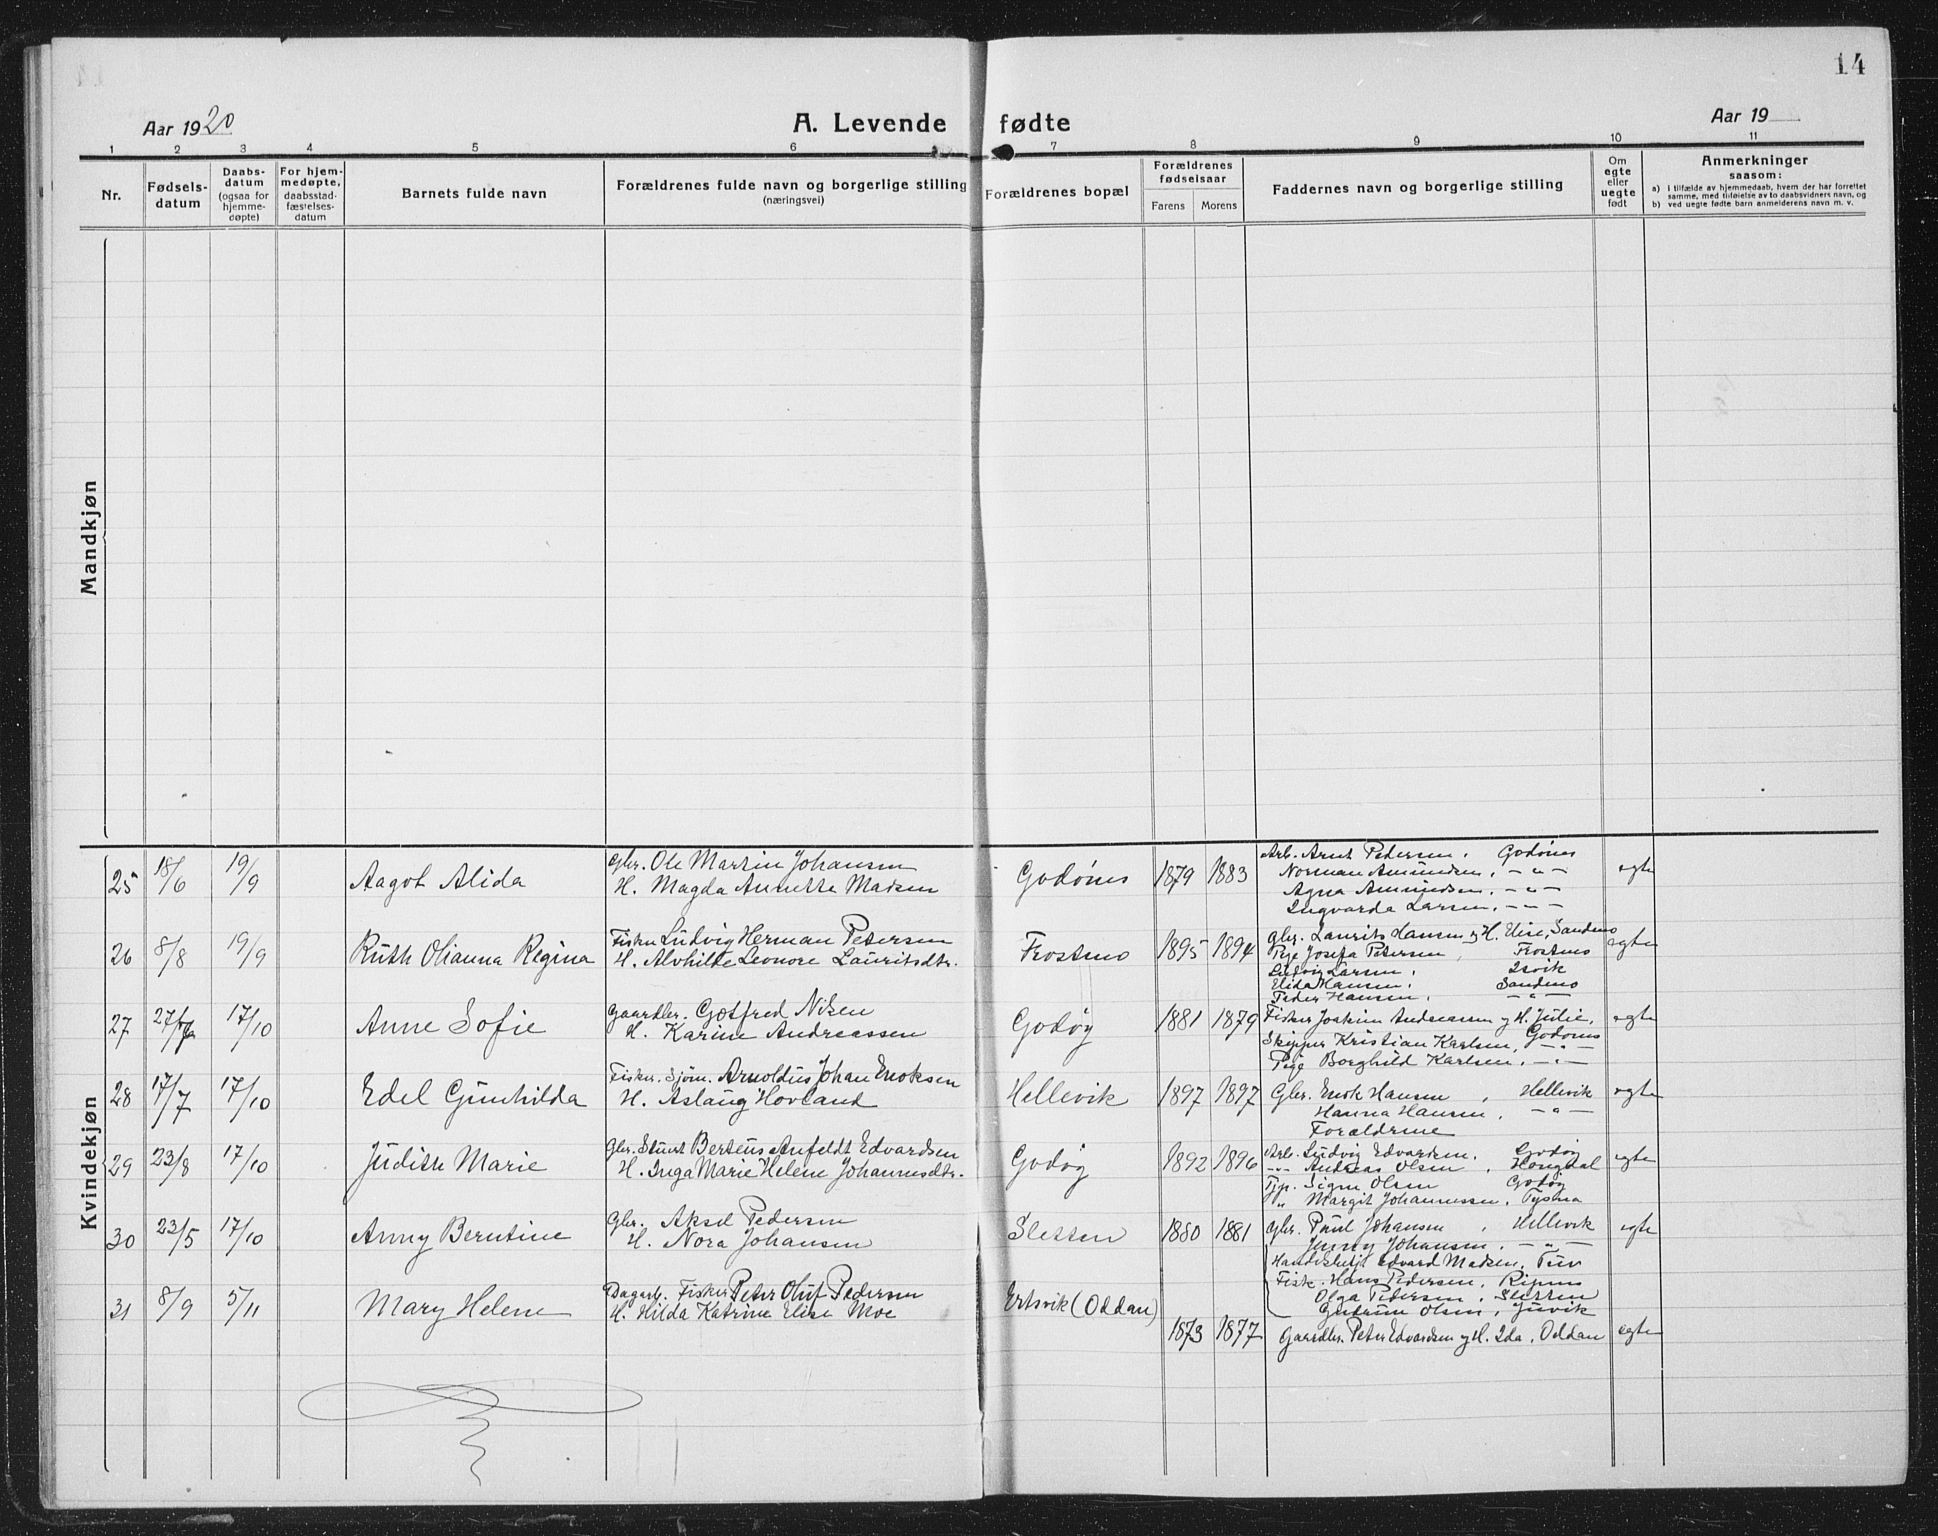 14
Aar 1920
A. Levende fødte
Aar 19
1 2 3 4 5 6 7 8 9 10 11
Nr.
Fødsels-
datum
Daabs-
datum
(ogsaa for
hjemme-
døpte)
For hjem-
medøpte,
daabsstad-
fæstelses-
datum
Barnets fulde navn
Forældrenes fulde navn og borgerlige stilling
(næringsvei)
Forældrenes bopæl
Forældrenes
fødselsaar
Farens Morens
Faddernes navn og borgerlige stilling
Om
egte
eller
uegte
født
Anmerkninger
saasom:
a) i tilfælde av hjemmedaab, hvem der har forrettet
samme, med tilføielse av to daabsvidners navn, og
b) ved uegte fødte barn anmelderens navn m. v.
Mandkjøn
Kvindekjøn
25 18/6 19/9 Aagot Alida
Gbr. Ole Martin Johansen
H. Magda Annette Madsen
Godønes 1879 1883
Arb. Arnt Pedersen, Godønes
Norman Amundsen, - " -
Agna Amundsen, - " -
Ingvarda Larsen, - " -
egte
26 8/8 19/9 Ruth Olianna Regina
Fisker Ludvig Herman Petersen
H. Alvhilde Leonore Lauritsdtr.
Frostmo 1895 1894
Gbr. Laurits Hansen og H. Elise, Sandmo
Pige Josefa Petersen, Frostmo
Ludvig Larsen,
Elida Hansen, Sandmo
Peder Hansen, - " -
egte
27 17/10 Anne Sofie
Gaardbr. Gotfred Nilsen
H. Karine Andreassen
Godøy 1881 1879
Fisker Joakim Andreassen og H. Julie,
Godønes
Skipper Kristian Karlsen, - " -
Pige Borghild Karlsen, - " -
egte
28 17/7 17/10 Edel Gunhilda
Fisker. Sjøm. Arnoldus Johan Enoksen
H. Aslaug Hovland
Hellevik 1897 1897
Gbr. Enok Hansen, Hellevik
Hanna Hansen, - " -
Forældrene
egte
29 23/8 17/10 Judith Marie
Gbr. Berteus Anfeldt Edvardsen
H. Inga Marie Helene Johannesdtr.
Godøy 1892 1896
Arb. Ludvig Edvardsen, Godøy
- " - Andreas Olsen,
Signe Olsen Godøy
" Margit Johannessen,
egte
30 23/5 17/10 Anny Berntine
Gbr. Aksel Pedersen
H. Nora Johansen
Sletten 1880 1881
Gbr. Paul Johansen, Hellevik
Jenny Johansen, - " -
Edvard Madsen, Tuv
Fisk. Hans Pedersen,
Olga Pedersen, Sletten
Gudrun Olsen,
egte
31 8/9 5/11 Mary Helene
Dagarb. Fisker Peter Oluf Pedersen
H. Hilda Katrine Elise Moe
Ertsvik (Oddan)
1873 1877
Gaardbr. Peter Edvardsen og H. Ida, Oddan
egte